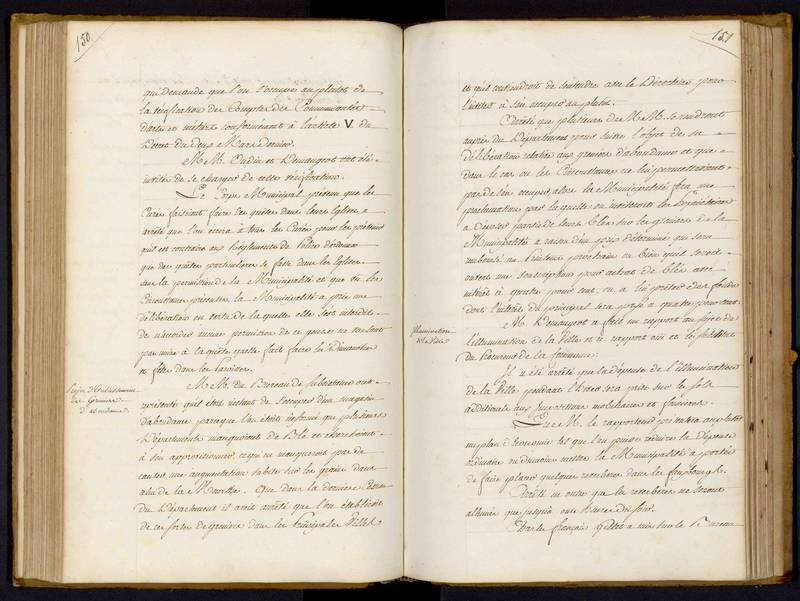 150
qui demande que l'on s'occupe au plutot de
la vérification des Comptes des Communautés
d'arts et métiers conformément à l'article V. du
Décret du deux Mars dernier.
M.M. Oudin et Demaugeot ont été
invités de se charger de cette vérification.
Le Corps Municipal prévenu que les
Curés faisoient faire des quêtes dans leurs Eglises a
arrêté que l'on écrira à tous les Curés pour les prévenir
qu'il est contraire aux Règlements de Police
que des quêtes particulières se fasse dans les Eglises
sans la permission de la Municipalité et que vu les
Circonstances présentes la Municipalité a pris une
délibération en vertu de la quelle elle s'est interdit
de n'accorder aucune permission de ce genre ne voulant
pas nuire à la quête qu'elle fait faire les Dimanches
et fêtes dans les Paroisses.
Projet d'établissement
de Greniers
d'abondance
M.M. du Bureau de subsistance ont
représenté qu'il étoit instant de s'occuper d'un magasin
d'abondance parceque l'on étoit informé que plusieurs
Départements manquoient de Blé et cherchoient
à s'en approvisionner, ce qui ne manqueroit pas de
causer une augmentation subite sur les grains dans
celui de la Marne. Que dans la dernière Session
du Département il avoit arrêté que l'on établiroit
de ces sortes de greniers dans les Principales Villes
151
et qu'il conviendroit de s'entendre avec le Directoire pour
l'inviter à s'en occuper au plutôt.
Arrêté que plusieurs de M.M. se rendront
auprès du Département pour suivre l'objet de sa
délibération relative aux greniers d'abondance et que
dans le cas ou les Circonstances ne lui permettroient
pas de s'en occuper alors la Municipalité fera une
proclamation par laquelle on
à déposer partie de leurs Blés sur les greniers de la
Municipalité à raison d'un prix déterminé qui sera
remboursé au Printems prochain ou bien qu'il seroit
ouvert une souscription pour achat de bleds avec
intérêt à quatre pour cent, ou a lui prêter des fonds
dont l'intérêt du principal sera payé à quatre pour cent.
Illumination
de la Ville
M. Demaugeot a fait un rapport au sujet de
l'illumination de la Ville et ce rapport ouï et le substitut
du Procureur de la Commune.
Il a été arrêté que la dépense de l'illumination
de la Ville pendant l'hiver sera prise sur les sols
additionels aux impositions mobiliaires et foncières.
Que M. le rapporteur présentera au plutôt
un plan d'Economie tel que l'on puisse réduire la dépense
ordinaire ou du moins mettre la Municipalité à portée
de faire placer quelques reverbères dans les fauxbourgs.
Arrêté en outre que les reverbères ne seront
allumés que jusqu'à onze heures du soir.
Charles françois Gillet a mis sur le Bureau